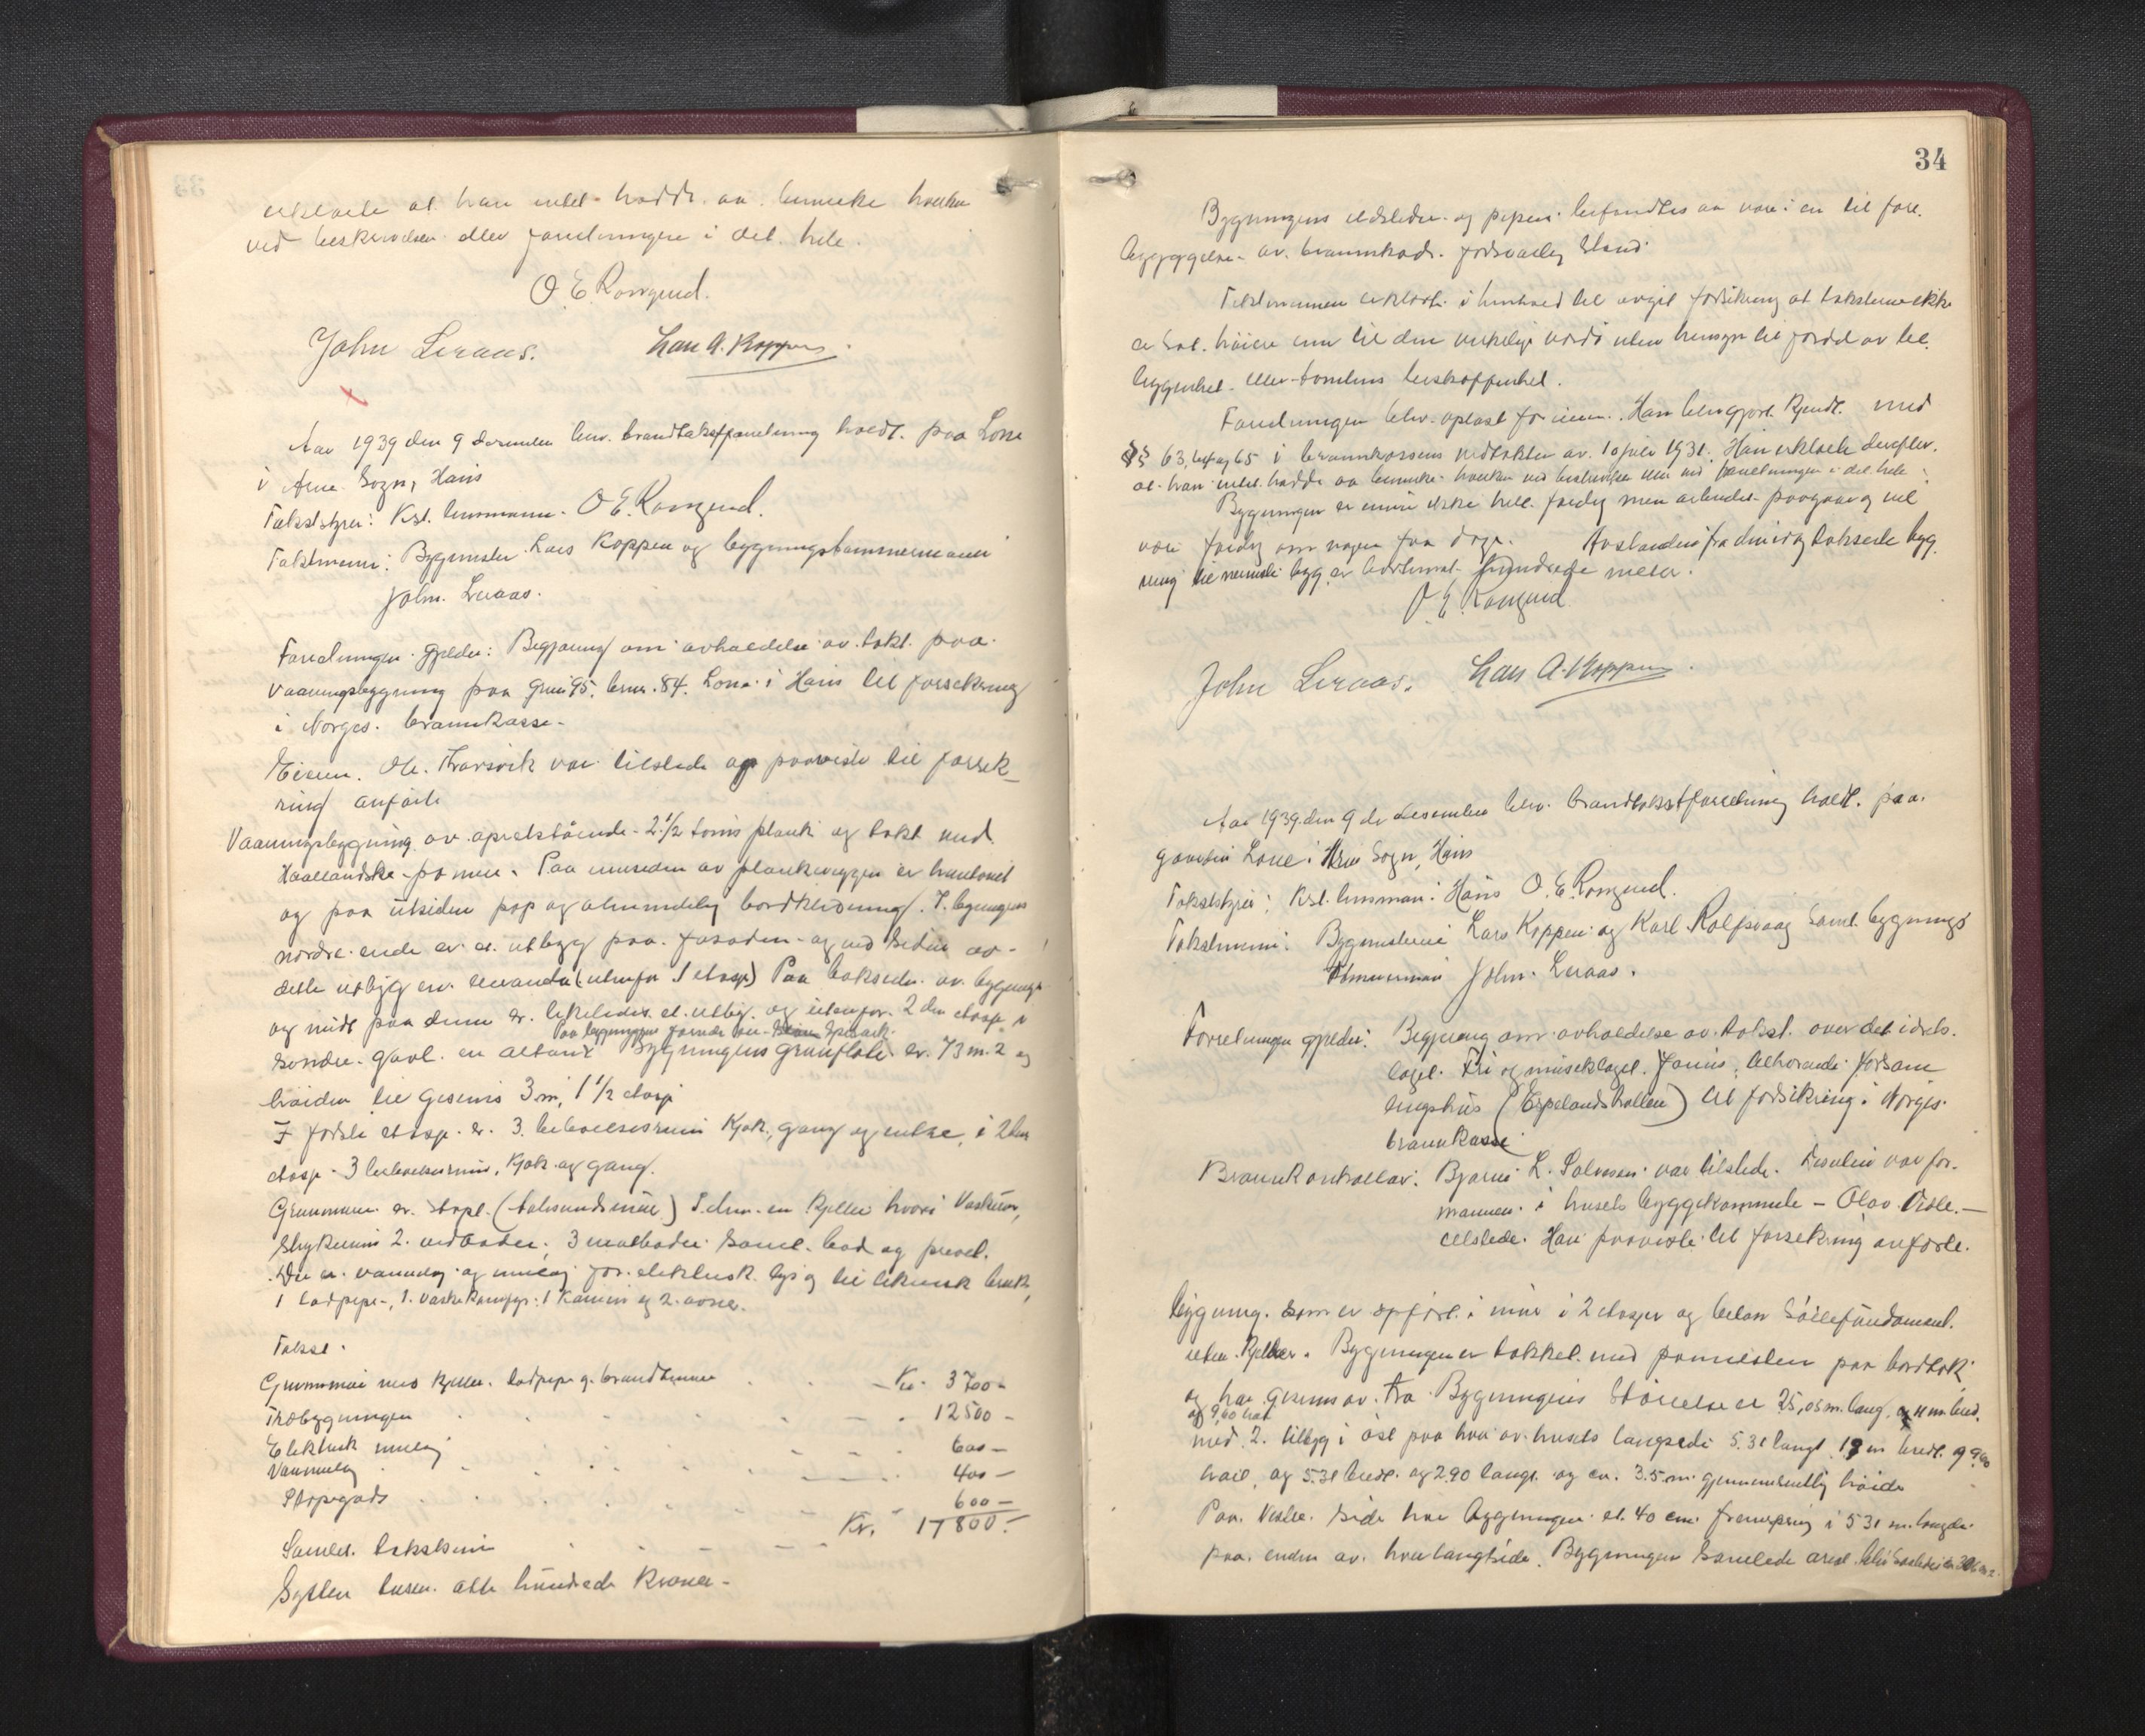 erklærte at han intet hadde aa bemerke hverken
ved beskrivelsen eller forretningen i det hele.
O. E. Romgrud.
John Leraas. Lars A. Koppen.
Aar 1939 den 9 desember blev brandtakstforretning holdt paa Lone
i Arne Sogn, Haus
Takststyrer: Kst. lensmann O E. Romgrud.
Takstmenn: Bygmester Lars Koppen og bygningstømmermann
John Leraas.
Forretningen gjelder: Begjæring om avholdelse av takst paa
vaaningsbygning paa Grnr 95, brnr. 84. Lone i Haus til forsikring
i Norges brannkasse.
Eieren Ole var tilstede og paaviste til forsik-
ring anførte
Vaaningsbygning av opretstående 2 1/2 toms plank og tekt med
Haallandske panner. Paa innsiden av plankeveggen er
og paa utsiden pap og almindelig bordklædning. I bygningens
nordre ende er et utbygg paa fasaden og ved siden av
dette utbygg en veranda (utenfor 1 etasje) Paa baksiden av bygningen
og midt paa denne er likeledes et utbyg. og utenfor 2 den etasje i
Paa bygningens forside en
søndre gavl en altan. Bygningens grunflate er 73 m. 2 og
høiden til gesims 3 m, 1 1/2 etasje
I første etasje er 3 beboelsesrum Kjøk., gang og entre, i 2den
etasje 3 beboelsesrum, Kjøk. og gang.
Grunmuren er støpt. I den en kjeller hvori Vaskerum,
Strykerum 2 vedboder, 3 matboder samt bad og
Der er vannlæg og innlæg for elektrisk lys og til teknisk bruk,
1 lodpipe, 1 vaskekum, 1 Kamin og 2 ovner.
Takst.
Grunnmur med kjeller, lodpipe og brandtrinn Kr. 3700-
Træbygningen 12500 -
Elektrisk innlæg 600 -
Vannledn 400 -
Støpegods 600 -
Kr. 17800.-
Samlet takstsum
Sytten tusen otte hundrede Kroner -
34
Bygningens ildsteder og piper befandtes aa være i en til fore-
byggelse av brannskade forsvarlig Stand.
Takstmennene erklærte i henhold til avgit forsikring at takstene ikke
er sat høiere enn til den virkelige værdi uten hensyn til fordel av be-
liggenhet eller tomtens beskaffenhet.
Forretningen blev oplæst for eieren. Han blev gjort kjendt med
§§ 63, 64 og 65 i brannkassens vedtekter av 10 juli 1931. Han erklærte derefter
at han intet hadde aa bemerke hverken ved beskrivelsen eller ved forretningen i det hele.
Bygningen er ennu ikke helt færdig men arbeidet paagaar og vil
være færdig om nogen faa dage. Avstanden fra denne takserte byg-
ning til nærmeste bygg er hundrede meter.
O. E. Romgrud
John Leraas. Lars A. Koppen.
Aar 1939 den 9 de desember blev brandtakstforretning holdt paa
gaarden Lone i Arne Sogn, Haus
Takststyrer: Kst. lensman i Haus O. E. Romgrud.
Takstmenn: Bygmesterne Lars Koppen og Karl Rolfsvaag samt bygnings
tømmermann John Leraas.
Forretningen gjelder: Begjæring om avholdelse av takst over det idrets-
laget Fri og musiklaget tilhørende forsam-
lingshus (Espelandshallen) til forsikring i Norges
brannkasse
Brannkontrollør: Bjarne L. Salvesen var tilstede. Desuten var for-
mannen i husets byggekommite - Olav
tilstede. Han paaviste til forsikring anførte.
bygning som er opført i mur i 2 etasjer og beton søilefundament
uten kjeller. Bygningen er takket med pannesten paa bordtak
og har gesims av træ. Bygningens Størrelse er 25,05 m. lang, og 11 m. bred,
og 9,60 høi
med 2 tilbyg i øst paa hver av husets langside 5.31 langt, 1 m bredt og 9,60
høit, og 5.31 bredt og 2.90 langt og ca. 3.5 m gjennemsnittlig høide
Paa Vestre side har bygningen et 40 cm. fremspring i 5 31 m. længde
paa enden av hver langside. Bygningens samlede areal